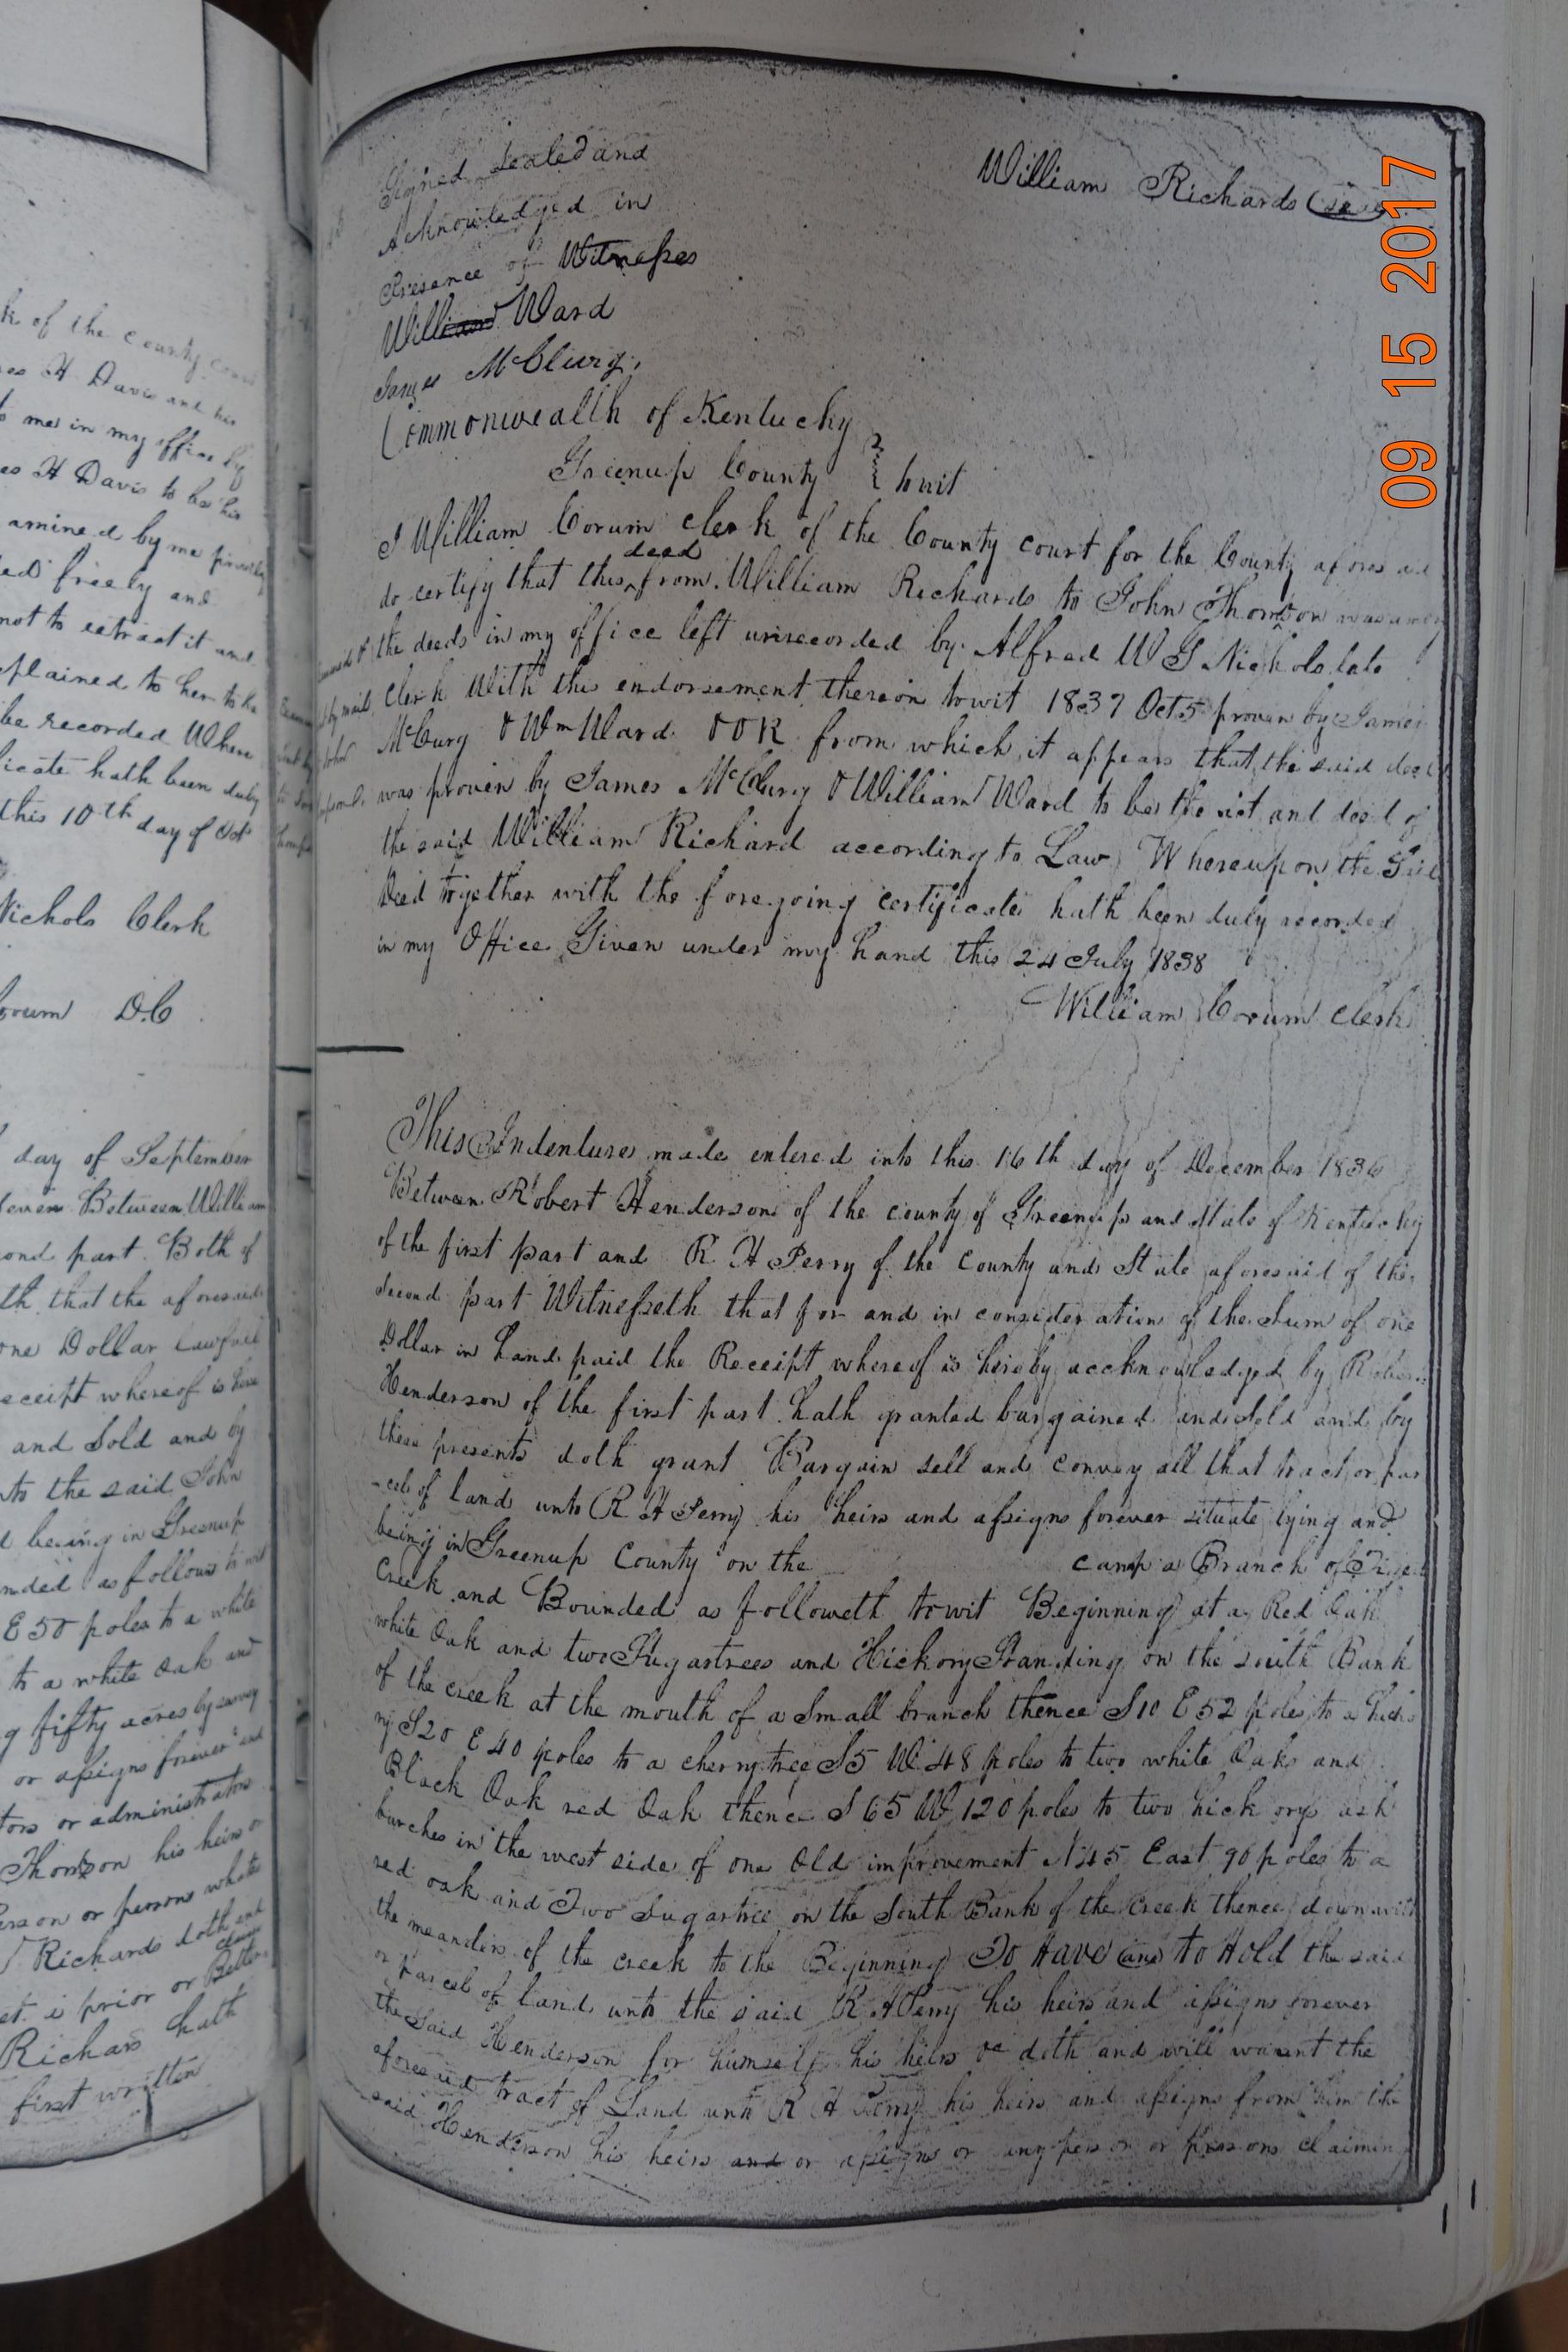 k of the County Court
es H Davis and his
to me in my office by
es H Davis to be his
amined by me privily
ed freely and
not to retract it and
plained to her to be
be recorded Where
icate hath been duly
this 10th day of Oct
Nichols Clerk
Corum D.C
day of September
even Between William
ond part. Both of
th that the aforesaid
one Dollar lawfull
eceipt whereof is here
and Sold and by
nto the said John
d being in Greenup
nded as follows to wit
E 50 poles to a white
to a white Oak and
g fifty acres by survey
or assigns forever and
tors or administrators
Thomson his heirs or
erson or persons whate
Richards doth and
claim
et. i prior or Better
Richars hath
first written
Signed Sealed and
Acknowledged in
Presence of Witnesses
William Ward
James McClurg,
William Richards (seal)
09 15 2017
Commonwealth of Kentucky
Greenup County } towit
I William Corum Clerk of the County court for the County aforesaid
deed
do certify that this from William Richards to John Thomson was among
the deeds in my office left unrecorded by Alfred W G Nichols late
Clerk With this endorsement thereon towit 1837 Oct 5 proven by James
McCurg & Wm Ward. & O K from which it appears that the said deed
was proven by James McClurg & William Ward to be the act and deed of
the said William Richard according to Law Whereupon the Said
Deed together with the foregoing certificate hath been duly recorded
in my Office Given under my hand this 24 July 1838
William Corum Clerk
This Indenture made entered into this 16th day of December 1836
Between Robert Henderson of the county of Greenup and State of Kentucky
of the first part and R H Perry of the County and State aforesaid of the
second part Witnesseth that for and in consideration of the Sum of one
Dollar in hand paid the Receipt whereof is hereby accknowledged by Robert
Henderson of the first part hath granted bargained and Sold and by
these presents doth grant Bargain sell and convey all that tract or par
-cel of land unto R H Perry his heirs and assigns forever situate lying and
being in Greenup County on the camp a Branch of Tiger
Creek and Bounded as followeth towit Beginning at a Red Oak
white Oak and two Sugartrees and Hickory Standing on the south Bank
of the creek at the mouth of a Small branch thence S 10 E 52 poles to a hicko
ry S 20 E 40 poles to a cherry tree S 5 W 48 poles to two white Oaks and
Black Oak red Oak thence S 65 W 120 poles to two hickorys ash
burches in the west side of one Old improvement N 45 East 90 poles to a
red oak and Two Sugartree on the South Bank of the creek thence down with
the meanders of the creek to the Beginning To Have and to Hold the said
or Parcel of land unto the said R H Perry his heirs and assigns forever
the Said Henderson for himself his heirs &c doth and will warent the
aforesaid tract of Land unto R H Perry his heirs and assigns from him the
said Henderson his heirs and or assigns or any person or persons claiming